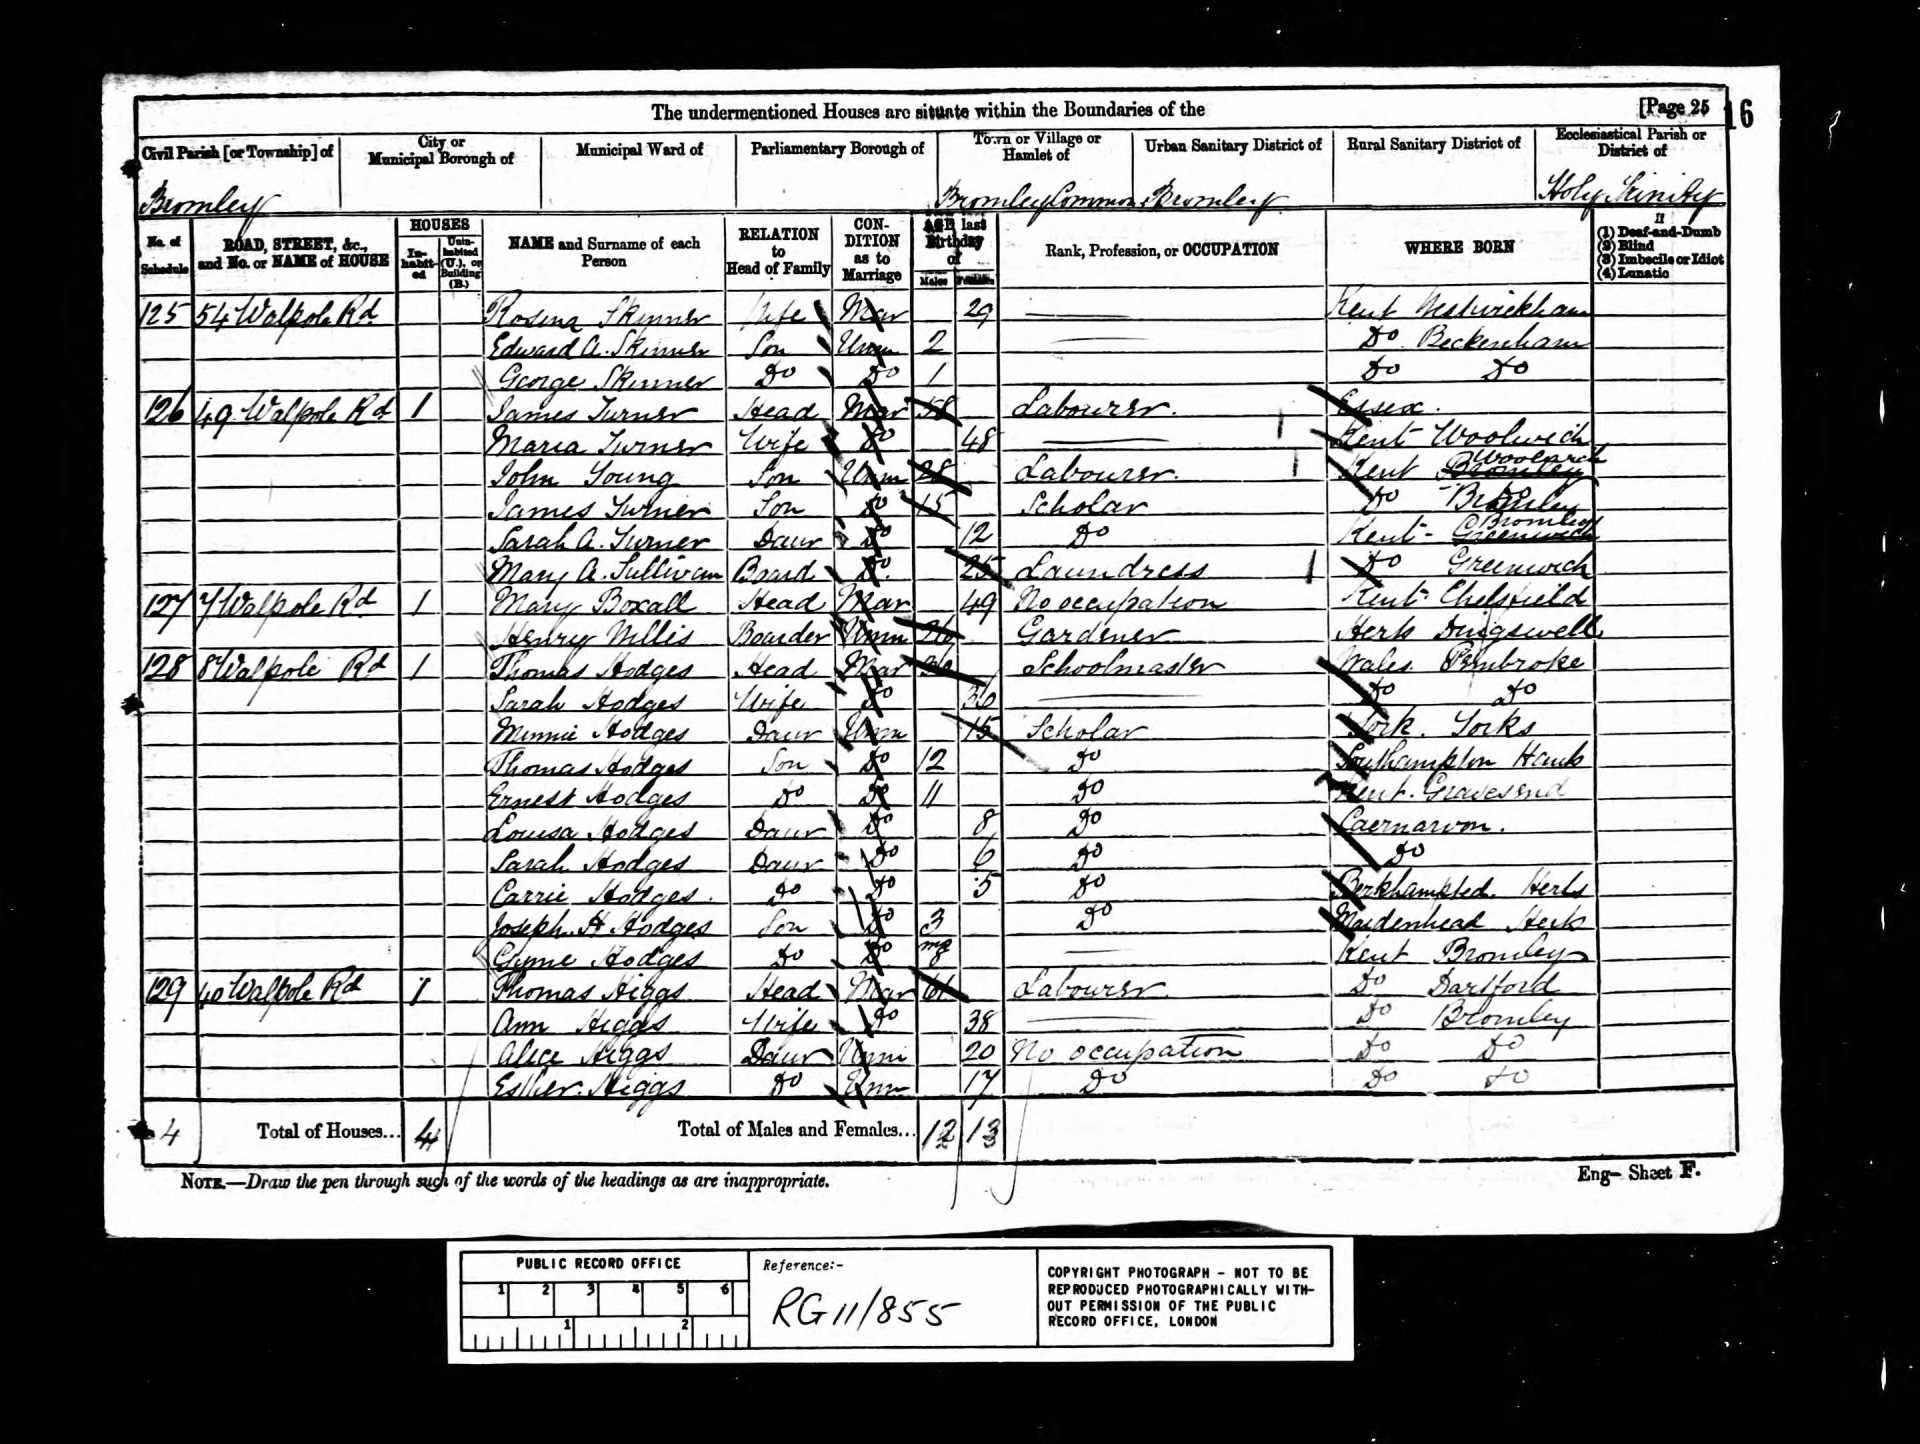 The undermentioned Houses are situate within the Boundaries of the [Page 25 16
Civil Parish [or Township] of City or Municipal Borough of Municipal Ward of Parliamentary Borough of Town or Village or Hamlet of Urban Sanitary District of Rural Sanitary District of Ecclesiastical Parish or District of
Bromley Bromley Common Bromley Holy Trinity
No. of Schedule ROAD, STREET, &c., and No. or NAME of HOUSE HOUSES Inhabited Uninhabited (U.), or Building (B.) NAME and Surname of each Person RELATION to Head of Family CONDITION as to Marriage AGE last Birthday of Males Females Rank, Profession, or OCCUPATION WHERE BORN If (1) Deaf-and-Dumb (2) Blind (3) Imbecile or Idiot (4) Lunatic
125 54 Walpole Rd Rosina Skinner Wife Mar 29 Kent Westwickham
Edward A. Skinner Son Unm 2 Do Beckenham
George Skinner Do Do 1 Do Do
126 49 Walpole Rd 1 James Turner Head Mar 58 Labourer. Essex.
Maria Turner Wife Do 48 Kent Woolwich
John Young Son Unm 28 Labourer. Kent Bromley
James Turner Son Do 15 Scholar Do Bromley
Sarah A. Turner Daur Do 12 Do Kent - Greenwich Bromley
Mary A. Sullivan Board Do. 25 Laundress Do Greenwich
127 7 Walpole Rd 1 Mary Boxall Head Mar 49 No occupation Kent Chelsfield
Henry Willis Boarder Unm Gardener Herts
128 8 Walpole Rd 1 Thomas Hodges Head Mar Schoolmaster Wales Pembroke
Sarah Hodges Wife Do 30 Do Do
Minnie Hodges Daur Unm 15 Scholar York. Yorks
Thomas Hodges Son Do 12 Do Southampton Hants
Ernest Hodges Do Do 11 Do Kent. Gravesend
Louisa Hodges Daur Do 8 Do Caernarvon.
Sarah Hodges Daur Do 6 Do Do
Carrie Hodges. Do Do 5 Do Berkhampsted. Herts
Joseph. H Hodges Son Do 3 Do Maidenhead Herts
Hodges Do Do 8 Kent Bromley
129 40 Walpole Rd 1 Thomas Higgs Head Mar 61 Labourer. Do Dartford
Ann Higgs Wife Do 38 Do Bromley
Alice Higgs Daur Unm 20 No occupation Do Do
Esther. Higgs Do Unm 17 Do Do Do
4 Total of Houses... 4 Total of Males and Females... 12 13
NOTE.—Draw the pen through such of the words of the headings as are inappropriate. Eng— Sheet F.
PUBLIC RECORD OFFICE
1 2 3 4 5 6
1 2
Reference:-
RG 11/855
COPYRIGHT PHOTOGRAPH - NOT TO BE
REPRODUCED PHOTOGRAPHICALLY WITH-
OUT PERMISSION OF THE PUBLIC
RECORD OFFICE, LONDON